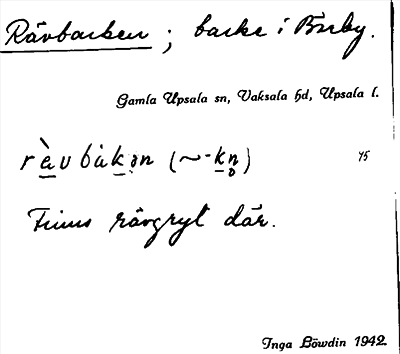 Rävbacken ; backe i Bärby.
Gamla Upsala sn, Vaksala hd, Upsala l.
rèvbàkən (~-kn̥) 45
Finns rävgryt där.
Inga Löwdin 1942.